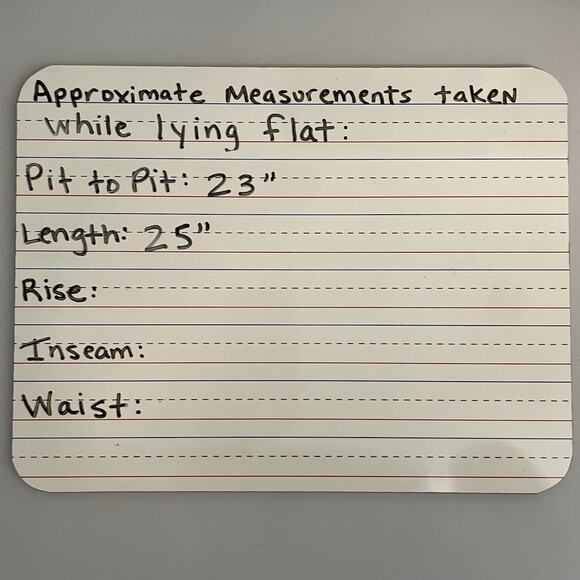 Approximate Measurements taken
while lying flat:
Pit to Pit: 23"
Length: 25"
Rise:
Inseam:
Waist: